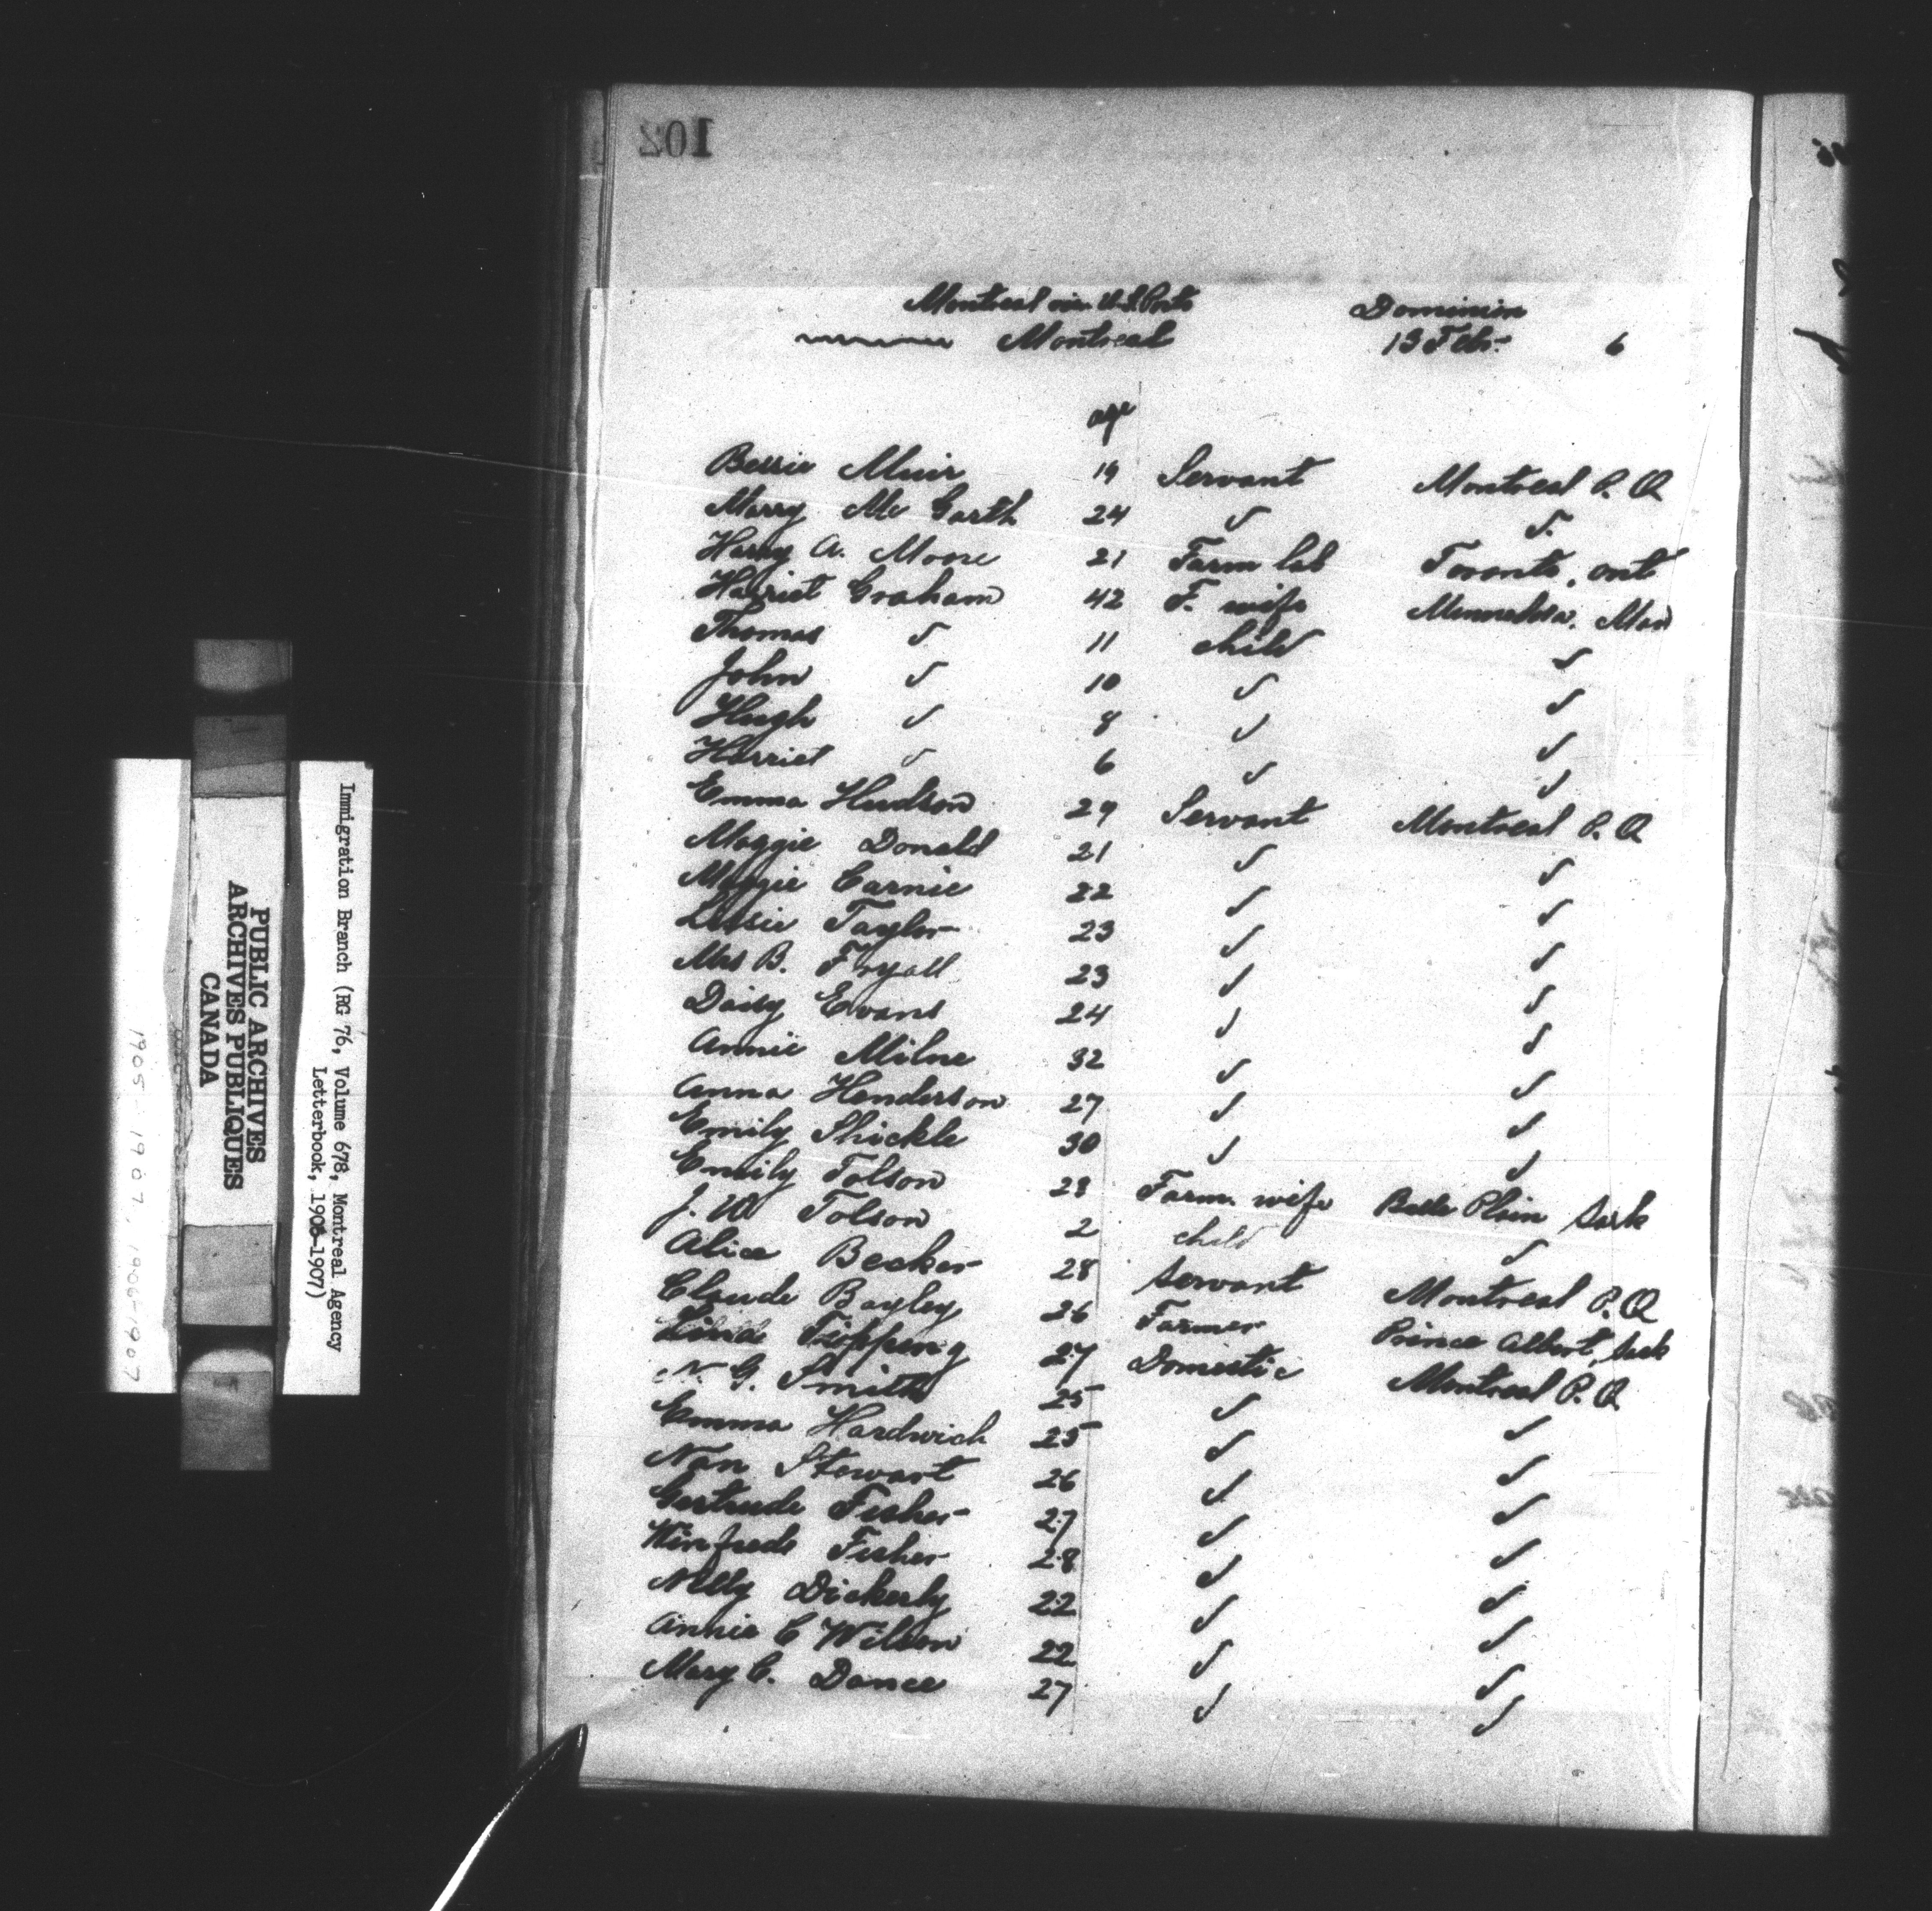 102
Montreal via U.S. Ports Dominion
Montreal 13 Feb. 6
age
Bessie Muir 19 Servant Montreal P. Q
Marry Mc Garth 24 " "
Harry A. Moore 21 Farm lab Toronto, ont
Harriet Graham 42 F. wife Man
Thomas " 11 child "
John " 10 " "
Hugh " 8 " "
Harriet " 6 " "
Emma Hudson 29 Servant Montreal P. Q
Maggie Donald 21 " "
Maggie Carnie 22 " "
Lessie Taylor 23 " "
Mrs B. Fryall 23 " "
Daisy Evans 24 " "
Annie Milne 32 " "
Anna Henderson 27 " "
Emily Shickle 30 " "
Emily Tolson 28 Farm wife Belle Plain Sask
J. W Tolson 2 child "
Alice Becker 28 Servant Montreal P. Q
Claude Bayley 26 Farmer Prince Albert, Sask
Topping 27 Domestic Montreal P. Q
N. G. Smith 25 " "
Emma Hardwich 25 " "
Nan Stewart 26 " "
Gertrude Fisher 27 " "
Winfrede Fisher 28 " "
Nelly Dickerly 22 " "
Annie C Wilson 22 " "
Mary C. Dance 27 " "
Immigration Branch (RG 76, Volume 678, Montreal Agency
Letterbook, 1905-1907)
PUBLIC ARCHIVES
ARCHIVES PUBLIQUES
CANADA
1905-1907, 1906-1907